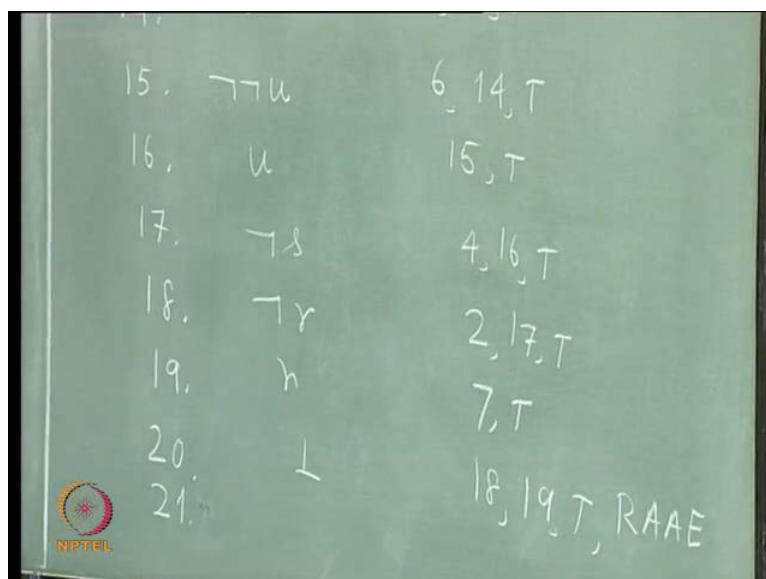 15. ¬¬u 6, 14, T
16. u 15, T
17. ¬s 4, 16, T
18. ¬r 2, 17, T
19. r 7, T
20. ⊥ 18, 19, T, RAAE
21.
NPTEL